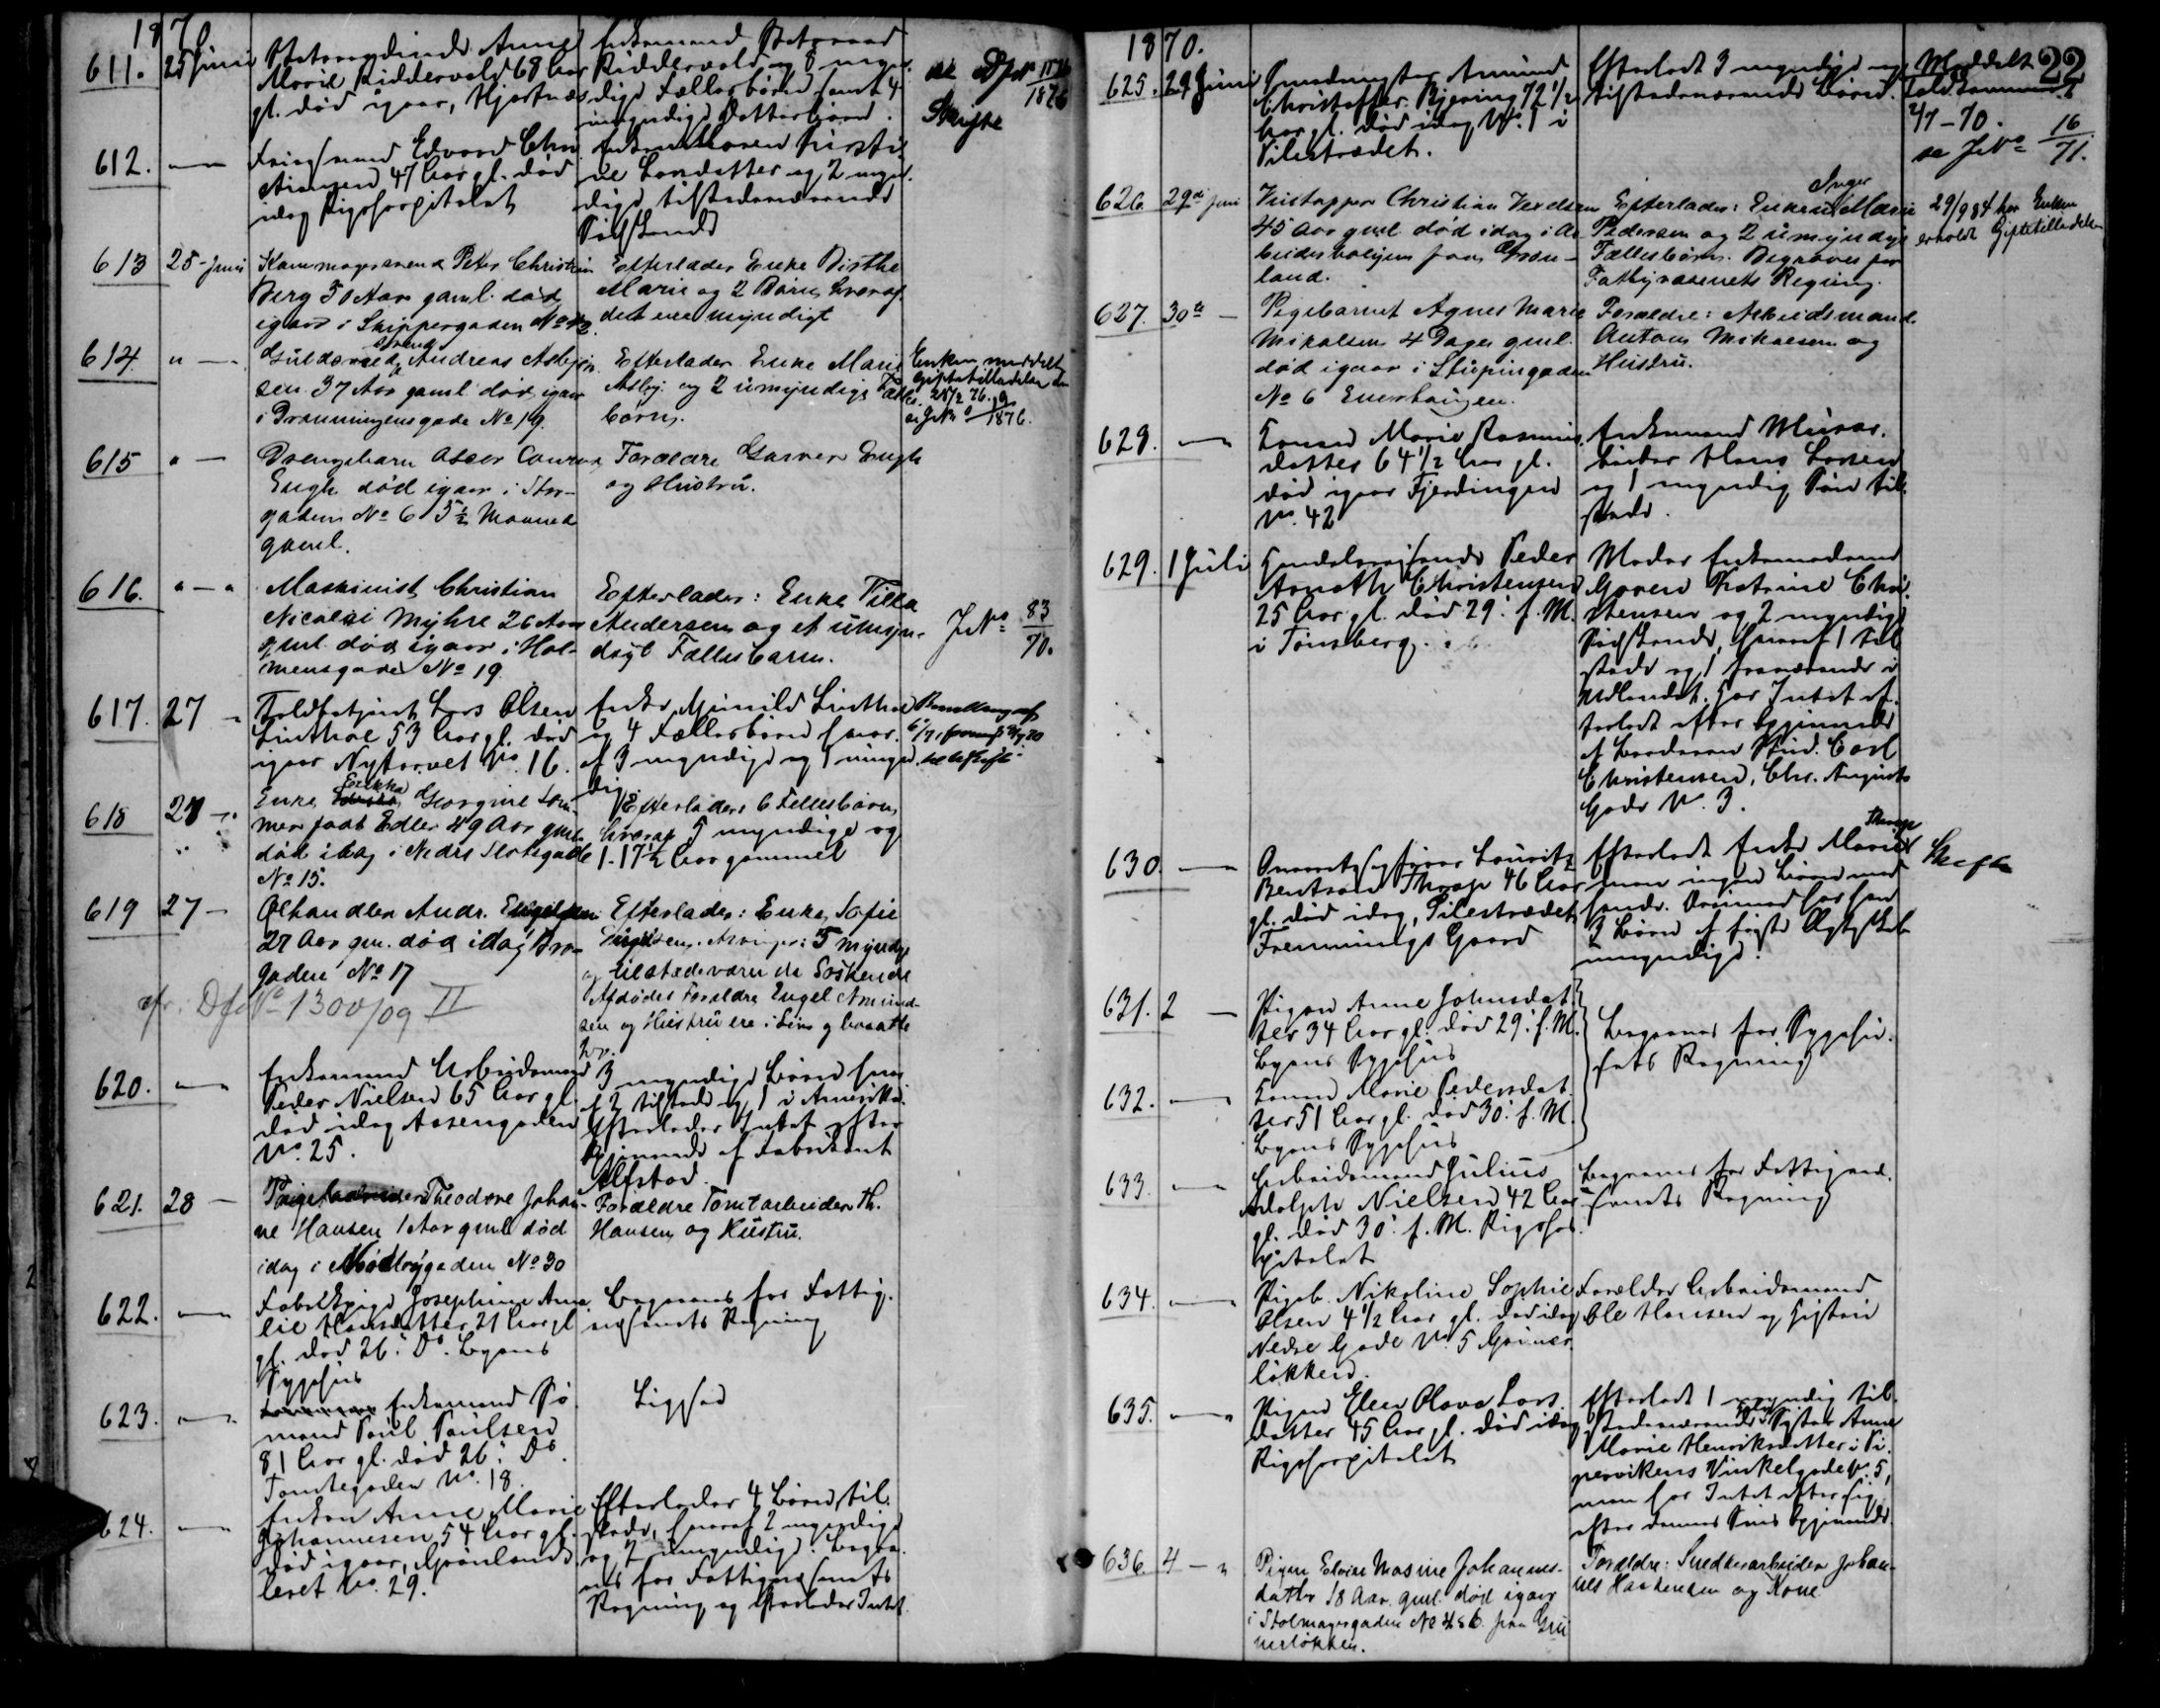 1870
611. 25 Juni Statsraadinde Anne
Marie Riddervold 68 Aar
gl. død igaar, Hjortnæs
Enkemand Statsraad
Riddervold og 8 myn-
dige Fællesbørn samt 4
umyndige Datterbørn.
se DfNo
1876
Skifte
612. — Edvard Chri
stiansen 47 Aar gl. død
idag Rigshospitalet
Enke Maren Kirsti-
ne Larsdatter og 2 myn-
dige tilstedeværende
Sødskende
613 25- Juni Kammagersvend Peter Christian
Berg 30 Aar gaml. død
igaar i Skippergaden No 42.
Efterlader Enke Birthe
Marie og 2 Børn, hvoraf
det ene myndigt
614 " — Guldsmedsvend Andreas Asbjørn-
sen 37 Aar gaml. død igaar
i Dronningensgade No 19.
Efterlader Enke Marie
Asbj. og 2 umyndige Fælles-
børn.
Enken meddelt
Giftetilladelse den
25/2 76.
se JNo 19/1876.
615 " — Drengebarn Oscar Conrad
Engh død igaar i Stor-
gaden No 6 5½ Maaned
gaml.
Forældre Garver Engh
og Hustru.
616. " — " Maskinist Christian
Nicolai Myhre 26 Aar
gml. død igaar i Hol-
mensgade No 19.
Efterlader: Enke Tilla
Andersen og et umyn-
digt Fællesbarn.
JNo 83/70.
617. 27 — Toldbetjent Lars Olsen
Linthoe 53 Aar gl. død
igaar Nytorvet No 16.
Enke Gunild Linthoe
og 4 Fællesbørn hvor-
af 3 myndige og 1 umyn-
dig
618 28 — Enke Erikka Georgine Som-
mer født Edler 49 Aar gml.
død idag i Nedre Slotsgade
No 15.
Efterlader 6 Fellesbørn,
hvoraf 5 myndige og
1- 17½ Aar gammel
619 27 — Ølhandler Andr. Engelsen
27 Aar gm. død idag Bro-
gaden No 17
Efterlader: Enke, Sofie
Engelsen. Arvinger: 5 myndige
og tilstedeværende Søskende
Afdødes Forældre Engel Amund-
sen og Hustru ere i Live og bosatte
her.
cfr. DfNo 1300/09 II
620. — Enkemand Arbeidsmand
Peder Nielsen 65 Aar gl.
død idag Aasengaden
No. 25.
3 myndige Børn hvor-
af 2 tilstede og 1 i Amerika.
Efterlader Intet efter
Opgivende af Fabrikant
Alfstad.
621. 28 — Pigebarnet Theodore Johan-
ne Hansen 1 Aar gml. død
idag i Nordbygaden No 30
Forældre Tomtarbeider Th.
Hansen og Hustru.
622. — Fabrikpige Josephine Ama
lie Hansdatter 21 Aar gl.
gl. død 26. Ds. Byens
Sygehus
Begraves for Fattig-
væsenets Regning
623. — Enkemand Sø
mand Poul Poulsen
81 Aar gl. død 26. Ds.
Tomtegaden No. 18.
Ligesaa
624. — Enken Anne Marie
Johannesen 54 Aar gl.
død igaar, Grønlands
leret No. 29.
Efterlader 4 Børn, til-
stede, hvoraf 2 myndige
og 2 umyndige. Begra-
ves for Fattigvæsenets
Regning og efterlader Intet.
1870.
22
625. 29 Juni Amund
Christoffer Bjerring 72½
Aar gl. død idag No. 1 i
Pilestrædet.
Efterladt 3 myndige og
tilstedeværende Børn.
Meddelt
4/7-70.
se JNo 16/71.
626 29de Juni Vintapper Christian Nielsen
45 Aar gml. død idag i Ar-
beiderboligen paa Grøn-
land.
Efterlader: Enken Inger Marie
Pedersen og 2 umyndige
Fællesbørn. Begraves for
Fattigvæsenets Regning.
29/9 84 har Enken
erholdt Giftetilladelse
627. 30te — Pigebarnet Agnes Marie
Mikalsen 4 Dage gml.
død igaar i Stupingaden
No 6 Enerhaugen.
Forældre: Arbeidsmand
Anton Mikalsen og
Hustru.
628. — Konen Marie Rasmus-
datter 64½ Aar gl.
død igaar Fjerdingen
No. 42
Enkemand Murar-
beider Hans Larsen
og 1 myndig Søn til-
stede.
629. 1 Juli Peder
Arnoth Christensen
25 Aar gl. død 29. f. M.
i Tønsberg.
Moder Enkemadame
Maren Katrine Chri-
stensen og 2 myndige
Sødskende, hvoraf 1 til-
stede og 1 fraværende i
Udlandet. Har Intet ef-
terladt efter Opgivende
af Broderen Stud. Carl
Christensen, Chr. Augusts
Gade No. 3.
630. — Lauritz
Bentsen Thrap 46 Aar
gl. død idag, Pilestrædet
Gaard
Efterladt Enke Marie Thrap
men ingen Børn med
hende. Derimod har han
3 Børn af første Ægteskab
umyndige.
Skifte
631. 2 — Pigen Anne Johnsdat-
ter 34 Aar gl. død 29. f. M.
Byens Sygehus
632. — Konen Marie Pedersdat-
ter 51 Aar gl. død 30. f. M.
Byens Sygehus
Begraves for Sygehu-
sets Regning
633. — Arbeidsmand Julius
Adolph Nielsen 42 Aar
gl. død 30. f. M. Rigshos-
pitalet
Begraves for Fattigvæ-
senets Regning
634. — Pigeb. Nikoline Sophie
Olsen 4½ Aar gl. død idag
Nedre Gade No. 5 Grüner-
løkken.
Forældre Arbeidsmand
Ole Hansen og Hustru
635. — Pigen Elen Olava Lars-
datter 45 Aar gl. død idag
Rigshospitalet
Efterladt 1 myndig til-
stedeværende Søster Anne
Marie Henriksdatter i Pi-
pervikens Vinkelgade No. 5,
men har Intet efter sig
efter dennes Opgivende.
636. 4 — " Pigen Elvine Masine Johannes-
datter 18 Aar gml. død igaar
i Stolmagergaden No 4 & 6 paa Grü
nerløkken.
Forældre: Snedkerarbeider Johan-
nes Haakensen og Kone